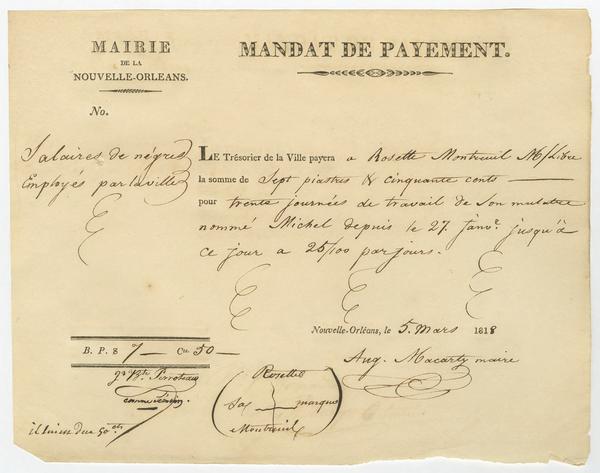 MAIRIE
DE LA
NOUVELLE-ORLEANS.
MANDAT DE PAYEMENT.
No.
Salaires de négres
Employés par la ville
LE Trésorier de la Ville payera a Rosette Montreuil N/Libre
la somme de Sept piastres & cinquante cents
pour trente journées de travail de Son mulatre
nommé Michel depuis le 27. janve. jusqu'à
ce jour a 25/100 par jours.
Nouvelle-Orléans, le 5. Mars 1818
B. P. $ 7 — Cts 50 —
Aug. Macarty maire
Rosette
Sa marque
Montreuil